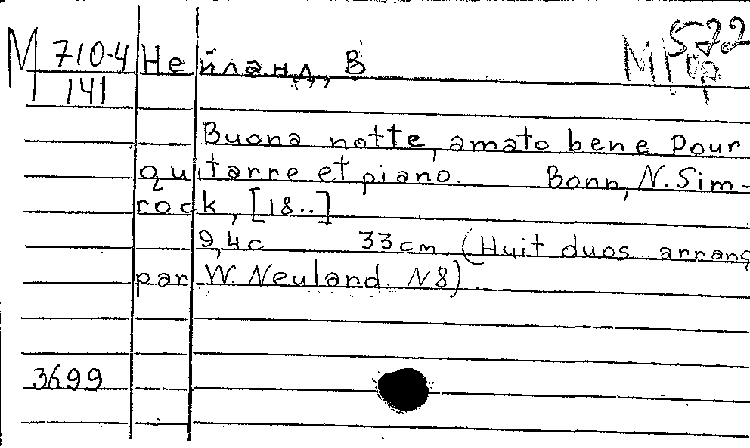 М 710-4 Нейланд, В
141
522
Buona notte, amato bene pour
quitarre et piano. Bonn, N. Sim-
rock, [18..]
9,4c 33 cm (Huit duos arrang
par W. Neuland. N8)
3699